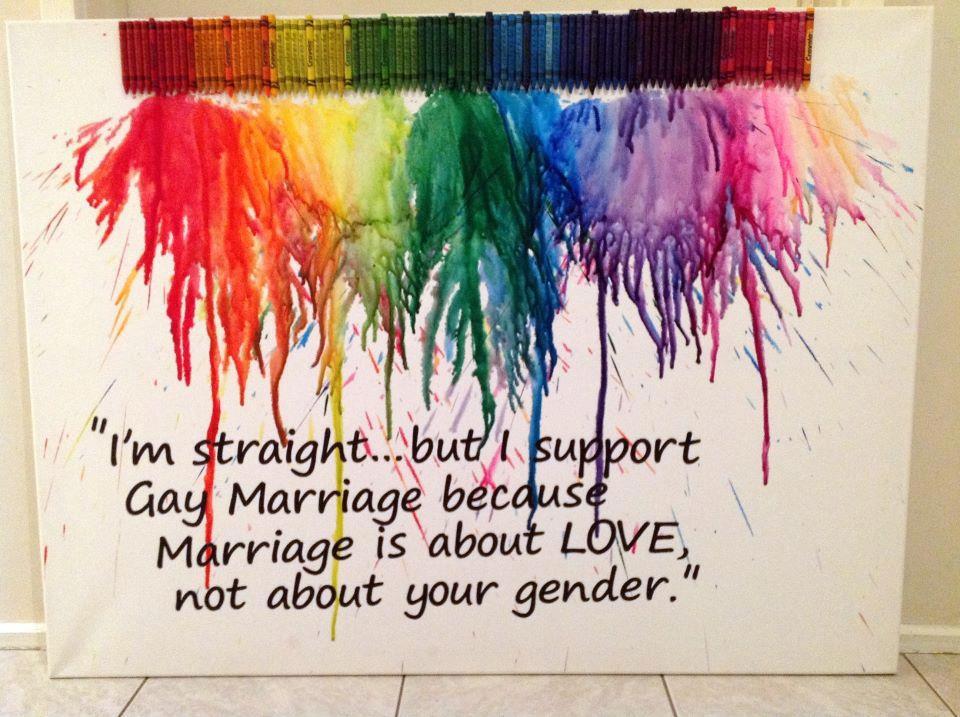 "I'm straight...but I support
Gay Marriage because
Marriage is about LOVE,
not about your gender."